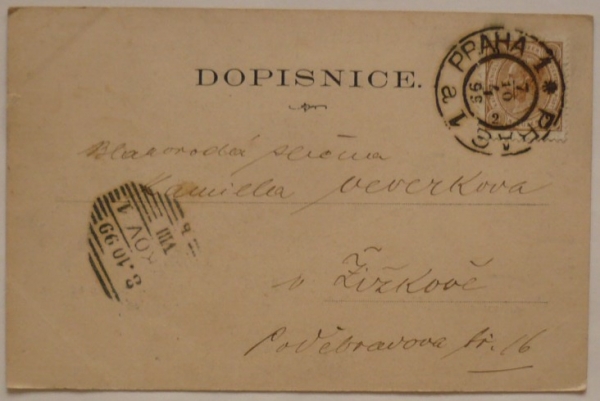 DOPISNICE.
PRAHA 1 * PRAG 1 a
7 10 99
2
Blahorodá slečna
Kamilla Veverkova
v Žižkově
Poděbradova tř. 16
KOV 1
VIII
8.10.99